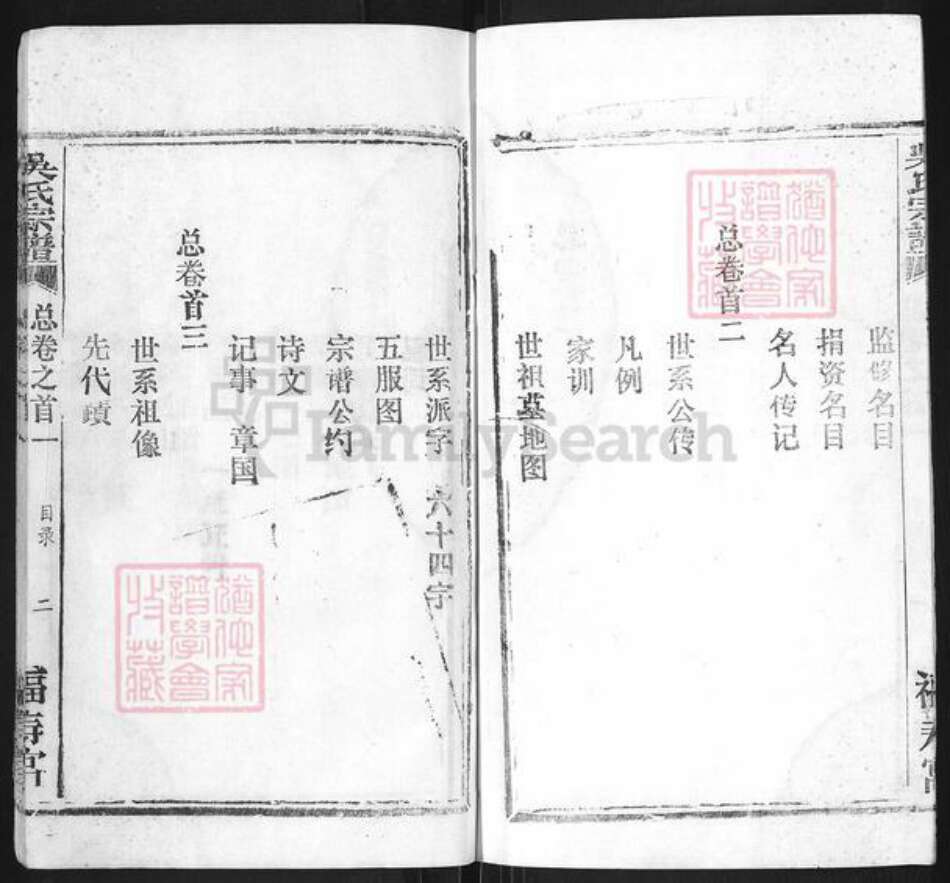 吳氏宗譜
監修名目
捐资名目
名人传记
总卷首二
世系公传
凡例
家训
世祖墓地图
世系派字 六十四字
五服图
宗谱公约
诗文
记事 章国
总卷首三
世系祖像
先代蹟
吳氏宗譜
总卷之首一
目录
二
福寿宫
猶他家
譜學會
收藏
猶他家
譜學會
收藏
FamilySearch